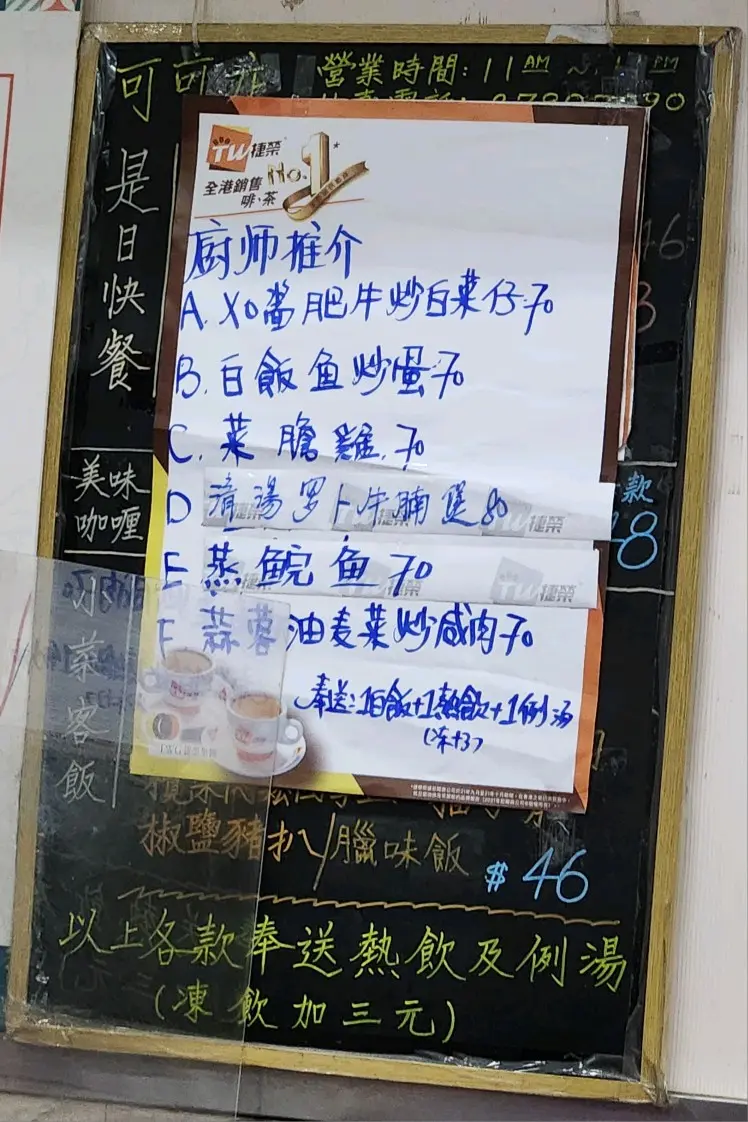 可可
營業時間: 11 AM ~ PM
是日快餐
TW捷榮
全港銷售 No.1
啡、茶
厨师推介
A. XO醬肥牛炒白菜仔 70
B. 白飯鱼炒蛋 70
C. 菜膽雞. 70
D 清湯罗卜牛腩煲 80
E 蒸鲩鱼 70
F 蒜蓉油麦菜炒咸肉 70
奉送: 1白飯+1熱飲+1例汤
(冻+3)
美味咖喱
款
8
小菜客飯
椒鹽豬扒/臘味飯 $46
以上各款奉送熱飲及例湯
(凍飲加三元)